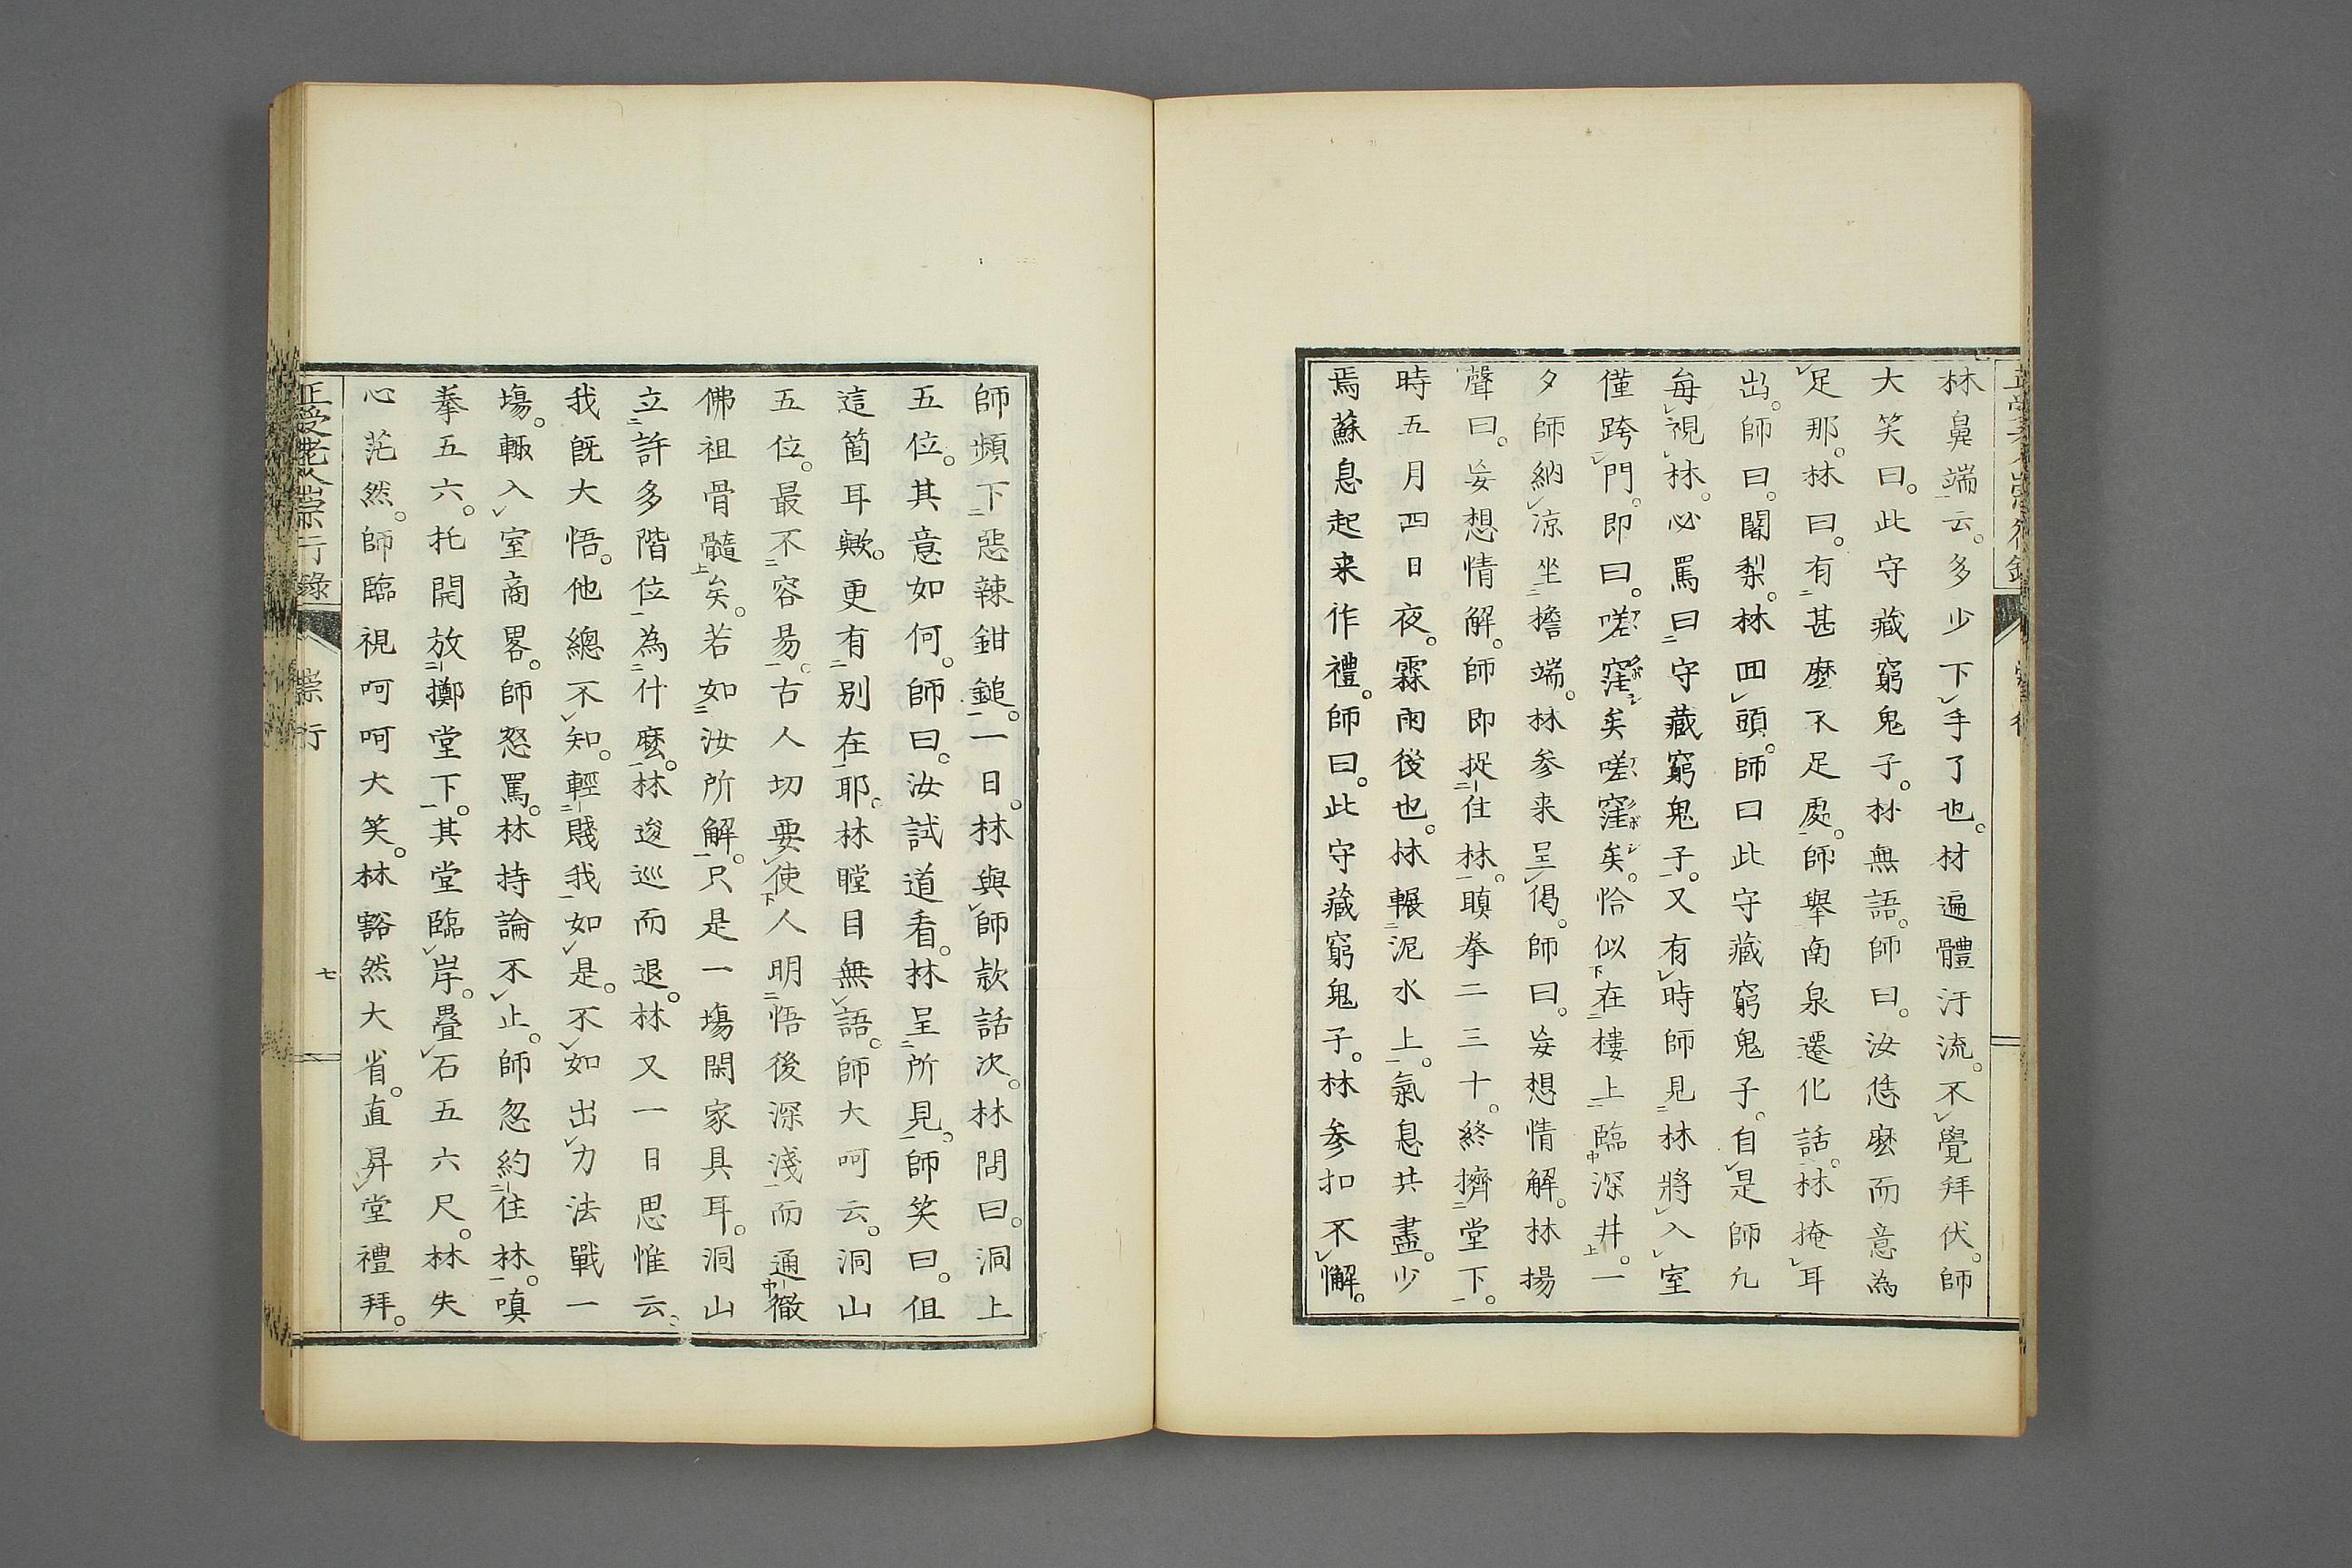 林鼻端云。多少下手了也。林遍體汗流。不覺拜伏。師
大笑曰。此守藏窮鬼子。林無語。師曰。汝恁麼而意為
足那。林曰。有甚麼不足處。師舉南泉遷化話。林掩耳
出。師曰。闍梨。林囬頭。師曰此守藏窮鬼子。自是師凢
每視林。必罵曰守藏窮鬼子。又有時師見林將入室
僅跨門。即曰。嗟窪矣嗟窪矣。恰似在樓上臨深井。一
夕師納凉坐檐端。林参来呈偈。師曰。妄想情解。林揚
聲曰。妄想情解。師即捉住林。瞋拳二三十。終擠堂下。
時五月四日夜。霖雨後也。林輾泥水上。氣息共盡。少
焉蘇息起来作禮。師曰。此守藏窮鬼子。林参扣不懈。
師頻下惡辣鉗鎚。一日。林與師款話次。林問曰。洞上
五位。其意如何。師曰。汝試道看。林呈所見。師笑曰。但
這箇耳歟。更有别在耶。林瞠目無語。師大呵云。洞山
五位。最不容易。古人切要使人明悟後深淺而通徹
佛祖骨髓矣。若如汝所解。只是一場閑家具耳。洞山
立許多階位為什麼。林逡巡而退。林又一日思惟云。
我既大悟。他總不知。輕賤我如是。不如出力法戰一
場。輙入室商畧。師怒罵。林持論不止。師忽約住林。嗔
拳五六。托開放擲堂下。其堂臨岸。疊石五六尺。林失
心茫然。師臨視呵呵大笑。林豁然大省。直昇堂禮拜。
正受老人崇行錄
崇行
七